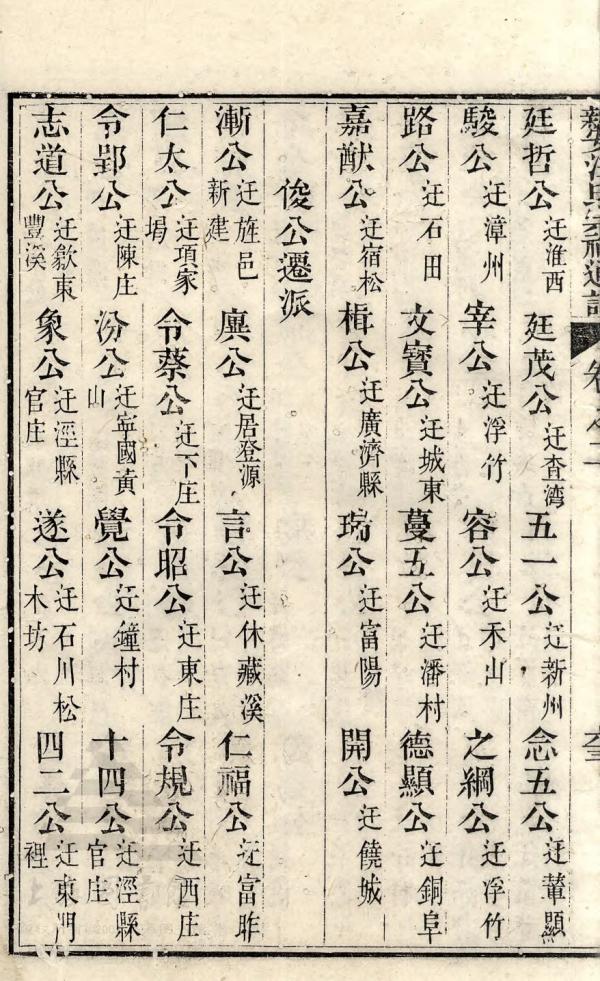 廷哲公 迁淮西 廷茂公 迁查湾 五一公 迁新州 念五公 迁葷顯
駿公 迁漳州 宰公 迁浮竹 容公 迁禾山 之綱公 迁浮竹
路公 迁石田 文寳公 迁城東 蔓五公 迁潘村 德顯公 迁銅阜
嘉猷公 迁宿松 楫公 迁廣濟縣 瑞公 迁富陽 開公 迁饒城
俊公遷派
漸公 迁旌邑新建 廙公 迁居登源 言公 迁休藏溪 仁福公 迁富昨
仁太公 迁項家塌 令蔡公 迁下庄 令昭公 迁東庄 令規公 迁西庄
令郢公 迁陳庄 汾公 迁寧國黄山 覺公 迁鐘村 十四公 迁涇縣官庄
志道公 迁歙東豐溪 象公 迁涇縣官庄 遂公 迁石川松木坊 四二公 迁東門裡